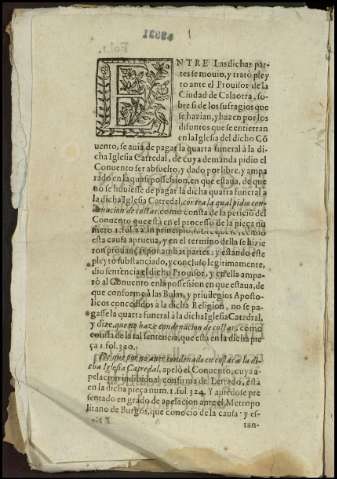 Fol. 1.
ENTRE Las dichas par-
tes se mouio, y tratò pley
to ante el Prouisor de la
Ciudad de Calaorra, so-
bre si de los sufragios que
se hazian, y hazen por los
difuntos que se entierran
en la Iglesia del dicho Cō
uento, se auia de pagar la quarta funeral à la di-
cha Iglesia Catredal, de cuya demanda pidio el
Conuento ser absuelto, y dado por libre, y ampa
rado en la quasi possession, en que estaua, de que
no se huuiesse de pagar la dicha quarta funeral à
la dicha Iglesia Catredal, contra la qual pidio con-
denacion de costas, como consta de la peticiō del
Conuento que està en el processo de la pieça nu
mero 1. fol. 
esta causa aprueua, y en el termino della se hizie
ron prouanças por ambas partes: y estando este
pleyto substanciado, y concluso legitimamente,
dio sentencia el dicho Prouisor, y en ella ampa-
rò al Conuento en la possession en que estaua, de
que conforme à las Bulas, y priuilegios Aposto-
licos concedidos à la dicha Religion, no se pa-
gasse la quarta funeral à la dicha Iglesia Catredal,
y dize, que no haze condenacion de costas, como
consta de la tal sentencia, que està en la dicha pie
ça 1. fol. 320.
De que por no auer condenado en costas à la di-
cha Iglesia Catredal, apelò el Conuento, cuya a-
pelacion
en la dicha pieça num. 1. fol. 324. Y auiendose pre
sentado en grado de apelacion ante el Metropo
litano de Burgos, que conocio de la causa: y es-
tan-